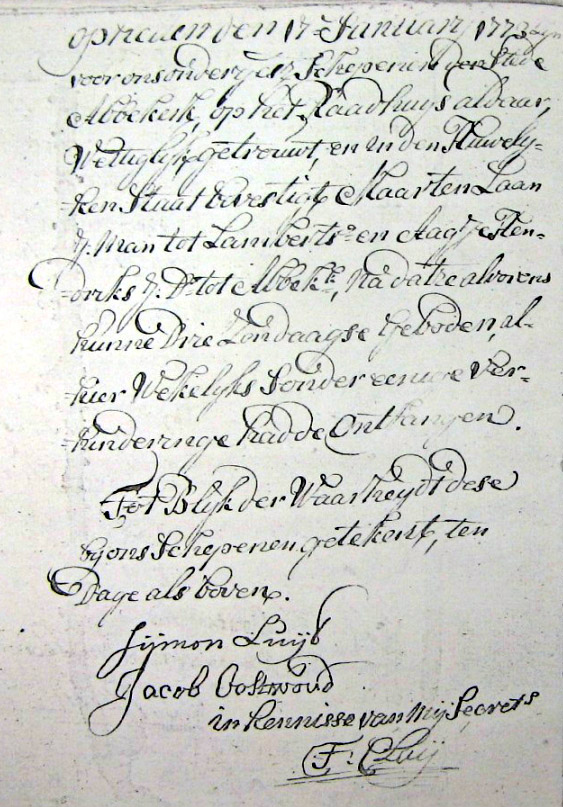 op heden den 17e January 1773 zyn
voor ons onderges: Schepenen der Stede
Abbekerk, op het Raadhuys aldaar,
Wettuglijk getrouwt, en in den Huwely-
=ken Staat bevestigt Maarten Laan
J: Man tot Lamberts=n en Aagje Hen-
=driks J: Dr tot Abbekk, Na dat ze alvorens
hunne Drie Zondaagse Geboden, al-
hier Wekelyks Sonder eenige Ver-
=hinderinge hadde Ontfangen.
Tot Blijk der Waarheydt dese
by ons Schepenen getekent, ten
Dage als boven.
Sijmon Luijt
Jacob Oostwoud
in kennisse van Mij Secrets
F: Cluij